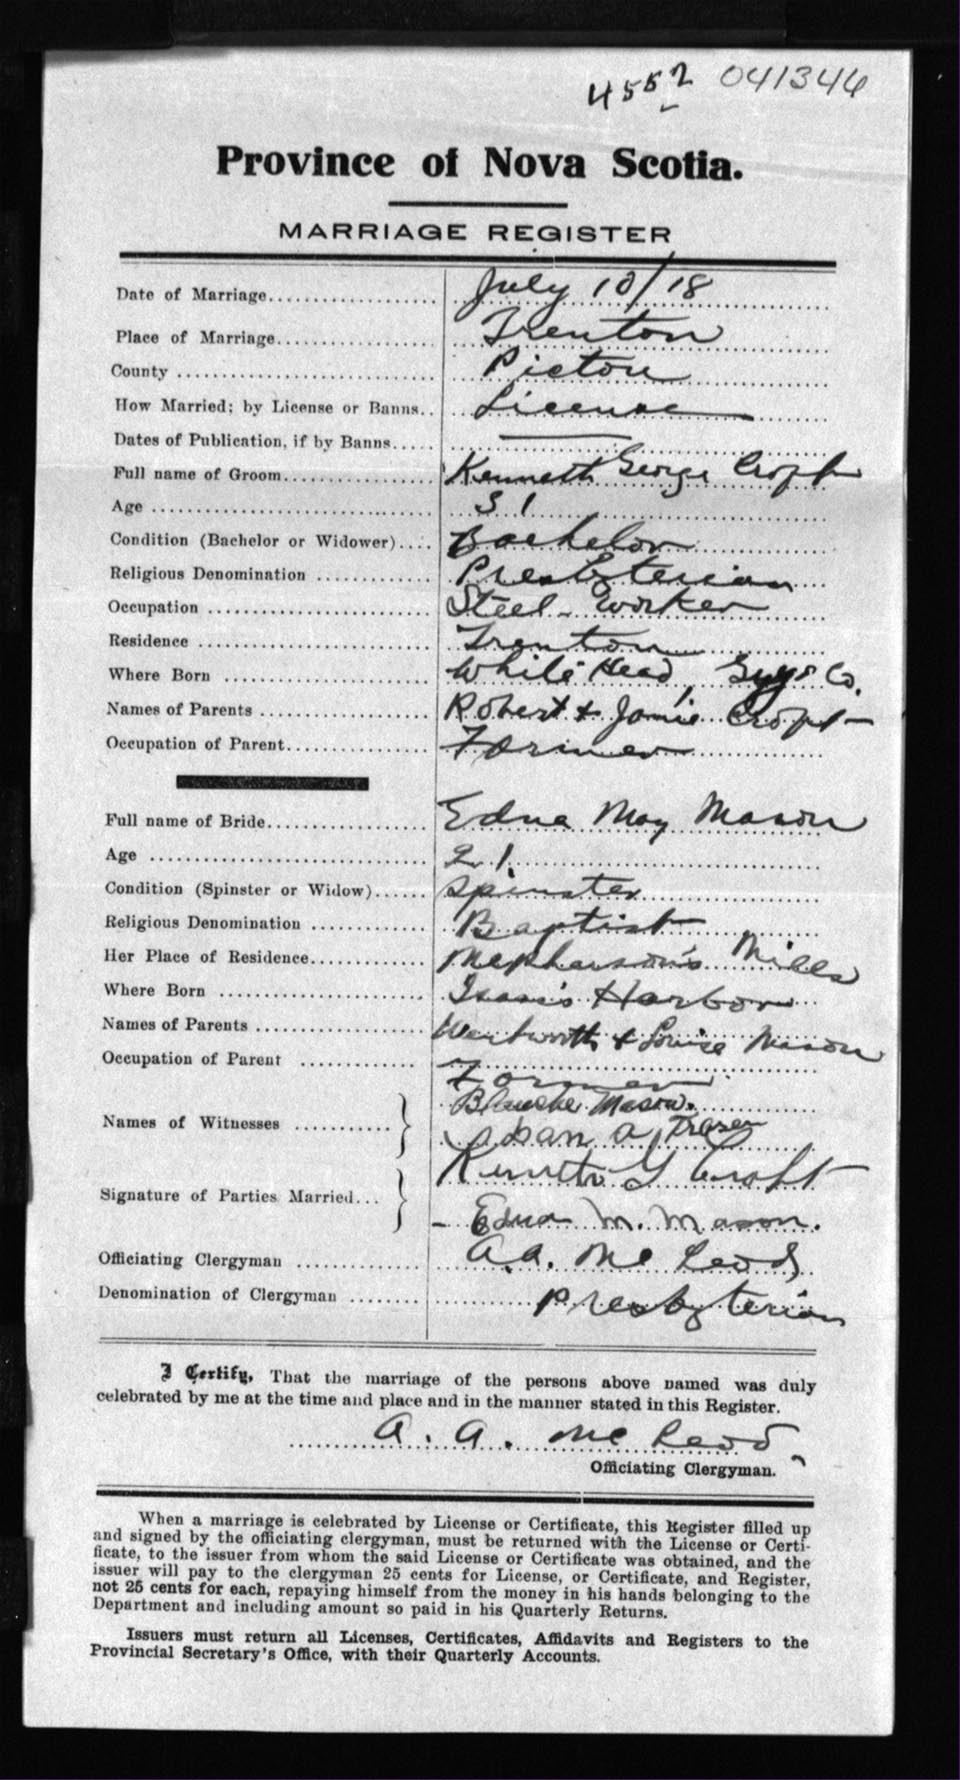 4552 041346
Province of Nova Scotia.
MARRIAGE REGISTER
Date of Marriage July 10/18
Place of Marriage Trenton
County Pictou
How Married; by License or Banns License
Dates of Publication, if by Banns
Full name of Groom Kenneth George Croft
Age 31
Condition (Bachelor or Widower) Bachelor
Religious Denomination Presbyterian
Occupation Steel-worker
Residence Trenton
Where Born White Head, Guys Co.
Names of Parents Robert & Jamie Croft
Occupation of Parent Farmer
Full name of Bride Edna May Mason
Age 21
Condition (Spinster or Widow) Spinster
Religious Denomination Baptist
Her Place of Residence McPherson's Mills
Where Born Isaac's Harbor
Names of Parents Wentworth & Louise Mason
Occupation of Parent Farmer
Names of Witnesses Blanche Mason.
Dan A Fraser
Signature of Parties Married Kenneth G Croft
Edna M. Mason.
Officiating Clergyman A.A. McLeod
Denomination of Clergyman Presbyterian
I Certify, That the marriage of the persons above named was duly
celebrated by me at the time and place and in the manner stated in this Register.
A. A. McLeod
Officiating Clergyman.
When a marriage is celebrated by License or Certificate, this Register filled up
and signed by the officiating clergyman, must be returned with the License or Certi-
ficate, to the issuer from whom the said License or Certificate was obtained, and the
issuer will pay to the clergyman 25 cents for License, or Certificate, and Register,
not 25 cents for each, repaying himself from the money in his hands belonging to the
Department and including amount so paid in his Quarterly Returns.
Issuers must return all Licenses, Certificates, Affidavits and Registers to the
Provincial Secretary's Office, with their Quarterly Accounts.